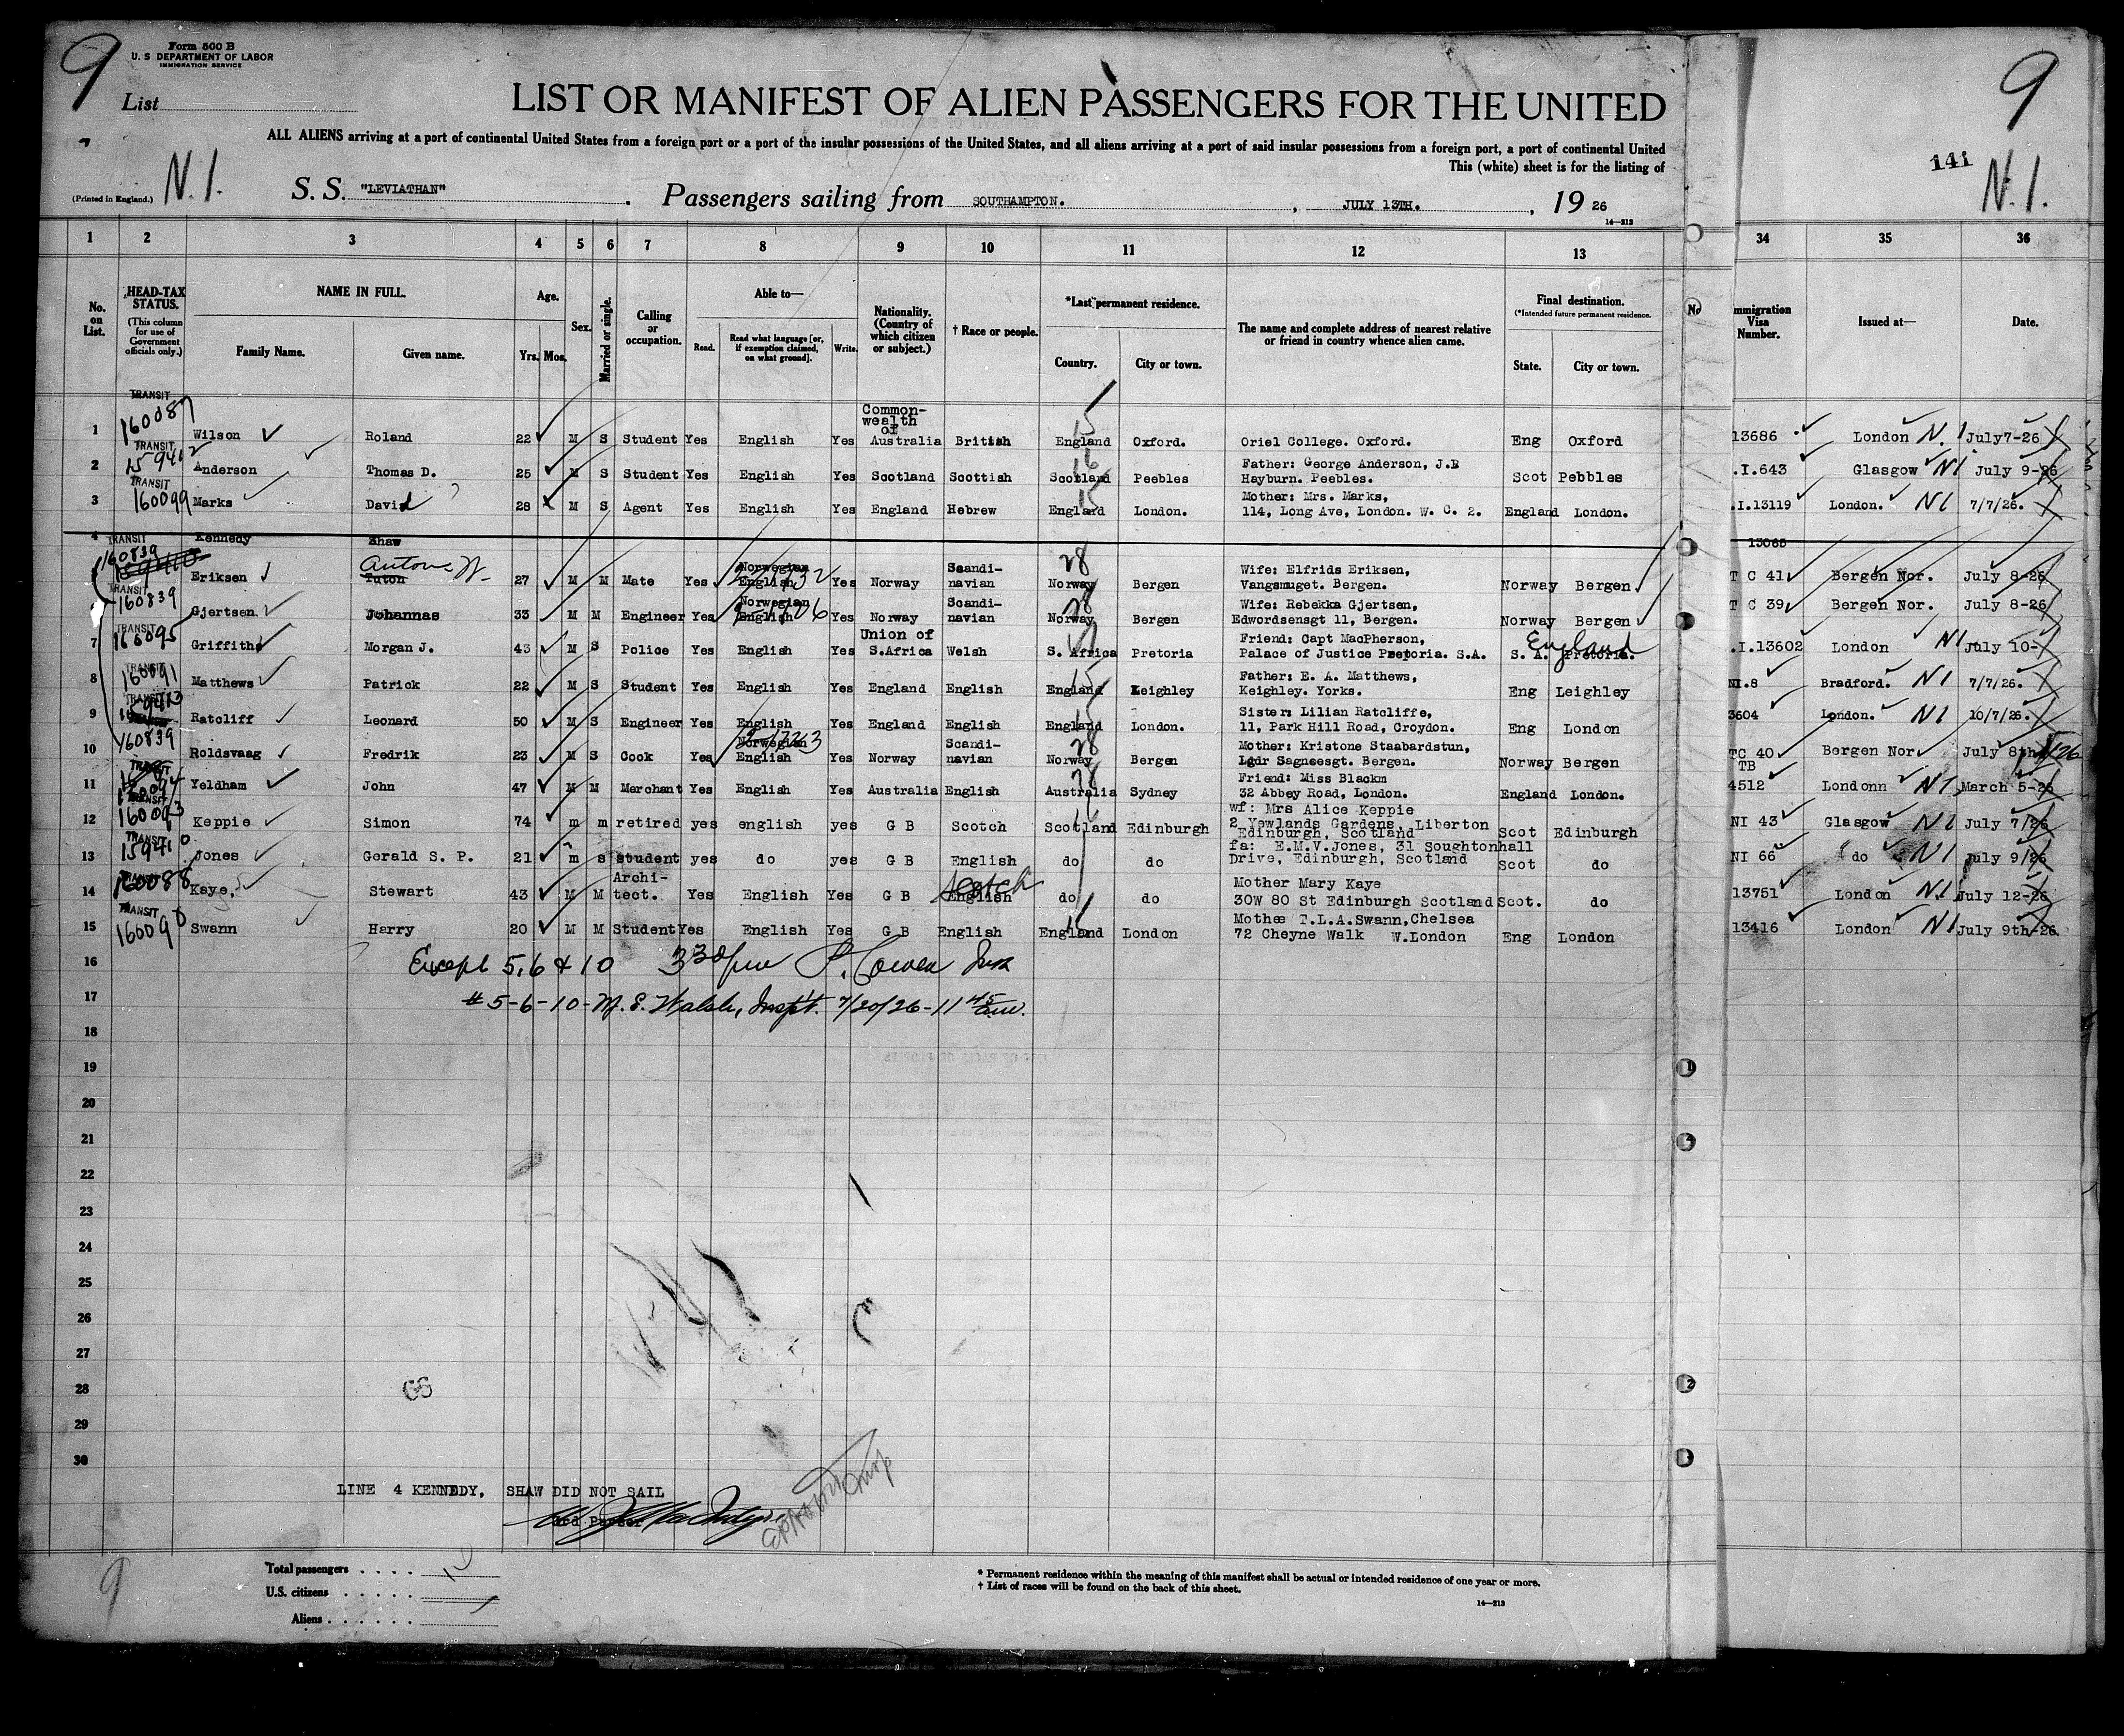 9
Form 500 B
U. S DEPARTMENT OF LABOR
IMMIGRATION SERVICE
List
LIST OR MANIFEST OF ALIEN PASSENGERS FOR THE UNITED
ALL ALIENS arriving at a port of continental United States from a foreign port or a port of the insular possessions of the United States, and all aliens arriving at a port of said insular possessions from a foreign port, a port of continental United
This (white) sheet is for the listing of
(Printed in England.) N.1. S. S. "LEVIATHAN" . Passengers sailing from SOUTHAMPTON. , JULY 13TH. , 19 26
14—213
9
141
N.1.
1 2 3 4 5 6 7 8 9 10 11 12 13 34 35 36
No. on List.
HEAD-TAX STATUS.
(This column for use of Government officials only.)
NAME IN FULL.
Family Name. Given name.
Age.
Yrs. Mos.
Sex.
Married or single.
Calling or occupation.
Able to—
Read. Read what language [or, if exemption claimed, on what ground]. Write.
Nationality. (Country of which citizen or subject.)
† Race or people.
*Last permanent residence.
Country. City or town.
The name and complete address of nearest relative or friend in country whence alien came.
Final destination.
(*Intended future permanent residence.
State. City or town.
mmigration Visa Number.
Issued at—
Date.
TRANSIT
160087
1 Wilson Roland 22 M S Student Yes English Yes Common-wealth of Australia British England 15 Oxford. Oriel College. Oxford. Eng Oxford 13686 London N.1 July7-26
TRANSIT
2 Anderson Thomas D. 25 M S Student Yes English Yes Scotland Scottish Scotland 16 Peebles Father: George Anderson, J.P Hayburn. Peebles. Scot Pebbles .I.643 Glasgow N1 July 9-26
TRANSIT
160099
3 Marks David 28 M S Agent Yes English Yes England Hebrew England 15 London. Mother: Mrs. Marks, 114, Long Ave, London. W. C. 2. England London. .I.13119 London. N1 7/7/26.
4 TRANSIT Kennedy Shaw 13065
160839
Eriksen Tuton Anton W. 27 M M Mate Yes Norwegian English Yes Norway Scandi-navian Norway 28 Bergen Wife: Elfrids Eriksen, Vangsmuget. Bergen. Norway Bergen T C 41 Bergen Nor. July 8-26
TRANSIT
160839
Gjertsen Johannas 33 M M Engineer Yes Norwegian English Yes Norway Scandi-navian Norway 28 Bergen Wife: Rebekka Gjertsen, Edwordsensgt 11, Bergen. Norway Bergen T C 39 Bergen Nor. July 8-26
TRANSIT
160095
7 Griffiths Morgan J. 43 M S Police Yes English Yes Union of S.Africa Welsh S. Africa Pretoria Friend: Capt MacPherson, Palace of Justice Pretoria. S.A. S. A. Pretoria. England .I.13602 London N1 July 10-
TRANSIT
160091
8 Matthews Patrick 22 M S Student Yes English Yes England English England 15 Keighley Father: E. A. Matthews, Keighley. Yorks. Eng Leighley NI.8 Bradford. N1 7/7/26.
TRANSIT
9 Ratcliff Leonard 50 M S Engineer Yes English Yes England English England 15 London. Sister: Lilian Ratcliffe, 11, Park Hill Road, Croydon. Eng London 3604 London. N1 10/7/26.
160839
10 Roldsvaag Fredrik 23 M S Cook Yes Norwegian English Yes Norway Scandi-navian Norway 28 Bergen Mother: Kristone Staabardstun, Lgdr Sagnesgt. Bergen. Norway Bergen TC 40 Bergen Nor. July 8th 26
TRANSIT
11 Yeldham John 47 M M Merchant Yes English Yes Australia English Australia Sydney Friend: Miss Blackm 32 Abbey Road, London. England London. TB 4512 Londonn N1 March 5-26
TRANSIT
160093
12 Keppie Simon 74 m m retired yes english yes G B Scotch Scotland 16 Edinburgh wf: Mrs Alice Keppie 2 Yewlands Gardens, Liberton Edinburgh, Scotland Scot Edinburgh NI 43 Glasgow N1 July 7/26
TRANSIT
159410
13 Jones Gerald S. P. 21 m s student yes do yes G B English do do fa: E.M.V.Jones, 31 Soughtonhall Drive, Edinburgh, Scotland Scot do NI 66 do N1 July 9/26
160088
14 Kaye, Stewart 43 M M Archi-tect. Yes English Yes G B English Scotch do do Mother Mary Kaye 30W 80 St Edinburgh Scotland Scot. do 13751 London N.1 July 12-26
TRANSIT
160090
15 Swann Harry 20 M M Student Yes English Yes G B English England 15 London Mothee T.L.A.Swann,Chelsea 72 Cheyne Walk W.London Eng London 13416 London N1 July 9th-26
16 Except 5,6 & 10 3 30 pm
17 # 5-6-10- M. E. Walsh, Inspt. 7/20/26-11 45 am.
18
19
20
21
22
23
24
25
26
27
28
29
30
LINE 4 KENNEDY, SHAW DID NOT SAIL
Total passengers . . . .
U.S. citizens . . . . .
Aliens . . . . . .
9
* Permanent residence within the meaning of this manifest shall be actual or intended residence of one year or more.
† List of races will be found on the back of this sheet.
14—213